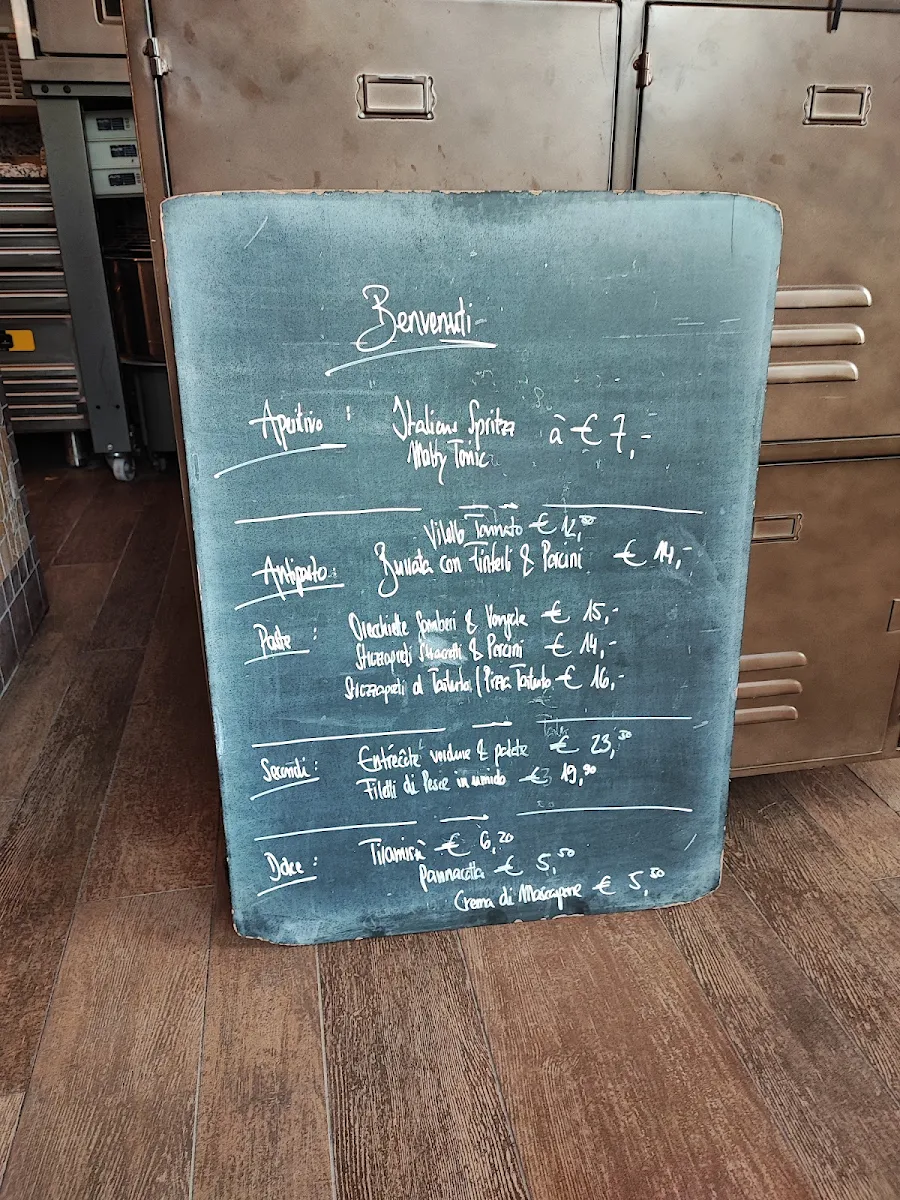 Benvenuti
Aperitivo : Italian Spritz à € 7,-
Malfy Tonic
Vitello Tonnato € 12,50
Antipasto: Burrata con & Porcini € 14,-
Paste : Orecchiette Gamberi & Vongole € 15,-
Strozzapreti & Porcini € 14,-
Strozzapreti al Tartufo / Pizza Tartufo € 16,-
Secondi : Entrecôte verdure & patate € 23,50
Filetti di Pesce in umido € 19,90
Dolce : Tiramisù € 6,20
Pannacotta € 5,50
Crema di Mascarpone € 5,50